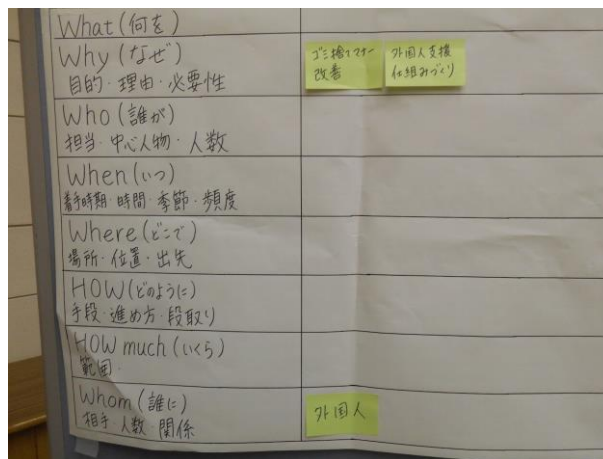 What (何を)
Why (なぜ)
目的・理由・必要性
ゴミ捨てマナー
改善
外国人支援
仕組みづくり
Who (誰が)
担当・中心人物・人数
When (いつ)
着手時期・時間・季節・頻度
Where (どこで)
場所・位置・出先
HOW (どのように)
手段・進め方・段取り
HOW much (いくら)
範囲・
Whom (誰に)
相手・人数・関係
外国人